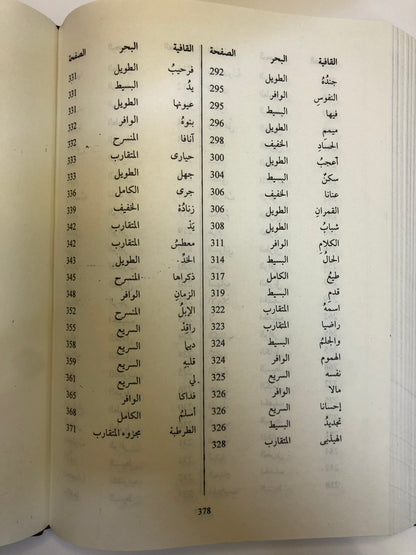 القافية البحر الصفحة
جندُهُ الطويل 292
النفوسِ الوافر 295
فيها البسيط 295
ميممِ الطويل 296
الحسادِ الخفيف 298
أعجبُ الطويل 300
سكنُ البسيط 304
عنانا الخفيف 306
القمرانِ الطويل 306
شبابُ الطويل 308
الكلامِ الوافر 311
الحالُ البسيط 314
طبعُ الكامل 317
قدمِ البسيط 320
اسمَهُ المتقارب 322
راضيا المتقارب 323
والحلمُ البسيط 324
الهموم الوافر 324
نفسه السريع 325
مالا الوافر 326
إحسانا السريع 326
تجديدُ البسيط 326
الهيذبى المتقارب 328
القافية البحر الصفحة
فرحيبُ الطويل 331
يدُ البسيط 331
عيونها الطويل 331
بنوهُ الوافر 332
آنافا المنسرح 332
حيارى المتقارب 333
جهل الطويل 333
جرى الكامل 336
زنادُهُ الخفيف 339
يَدْ المتقارب 342
معطسُ المتقارب 342
الخدِّ الطويل 343
ذكراها البسيط 345
الزمانِ الوافر 348
الإبلُ المنسرح 352
راقدْ السريع 355
ديما السريع 358
قلبِهِ السريع 359
لي السريع 361
فذاكا الوافر 365
أسلمُ الكامل 368
الطرطبة مجزوء المتقارب 371
378